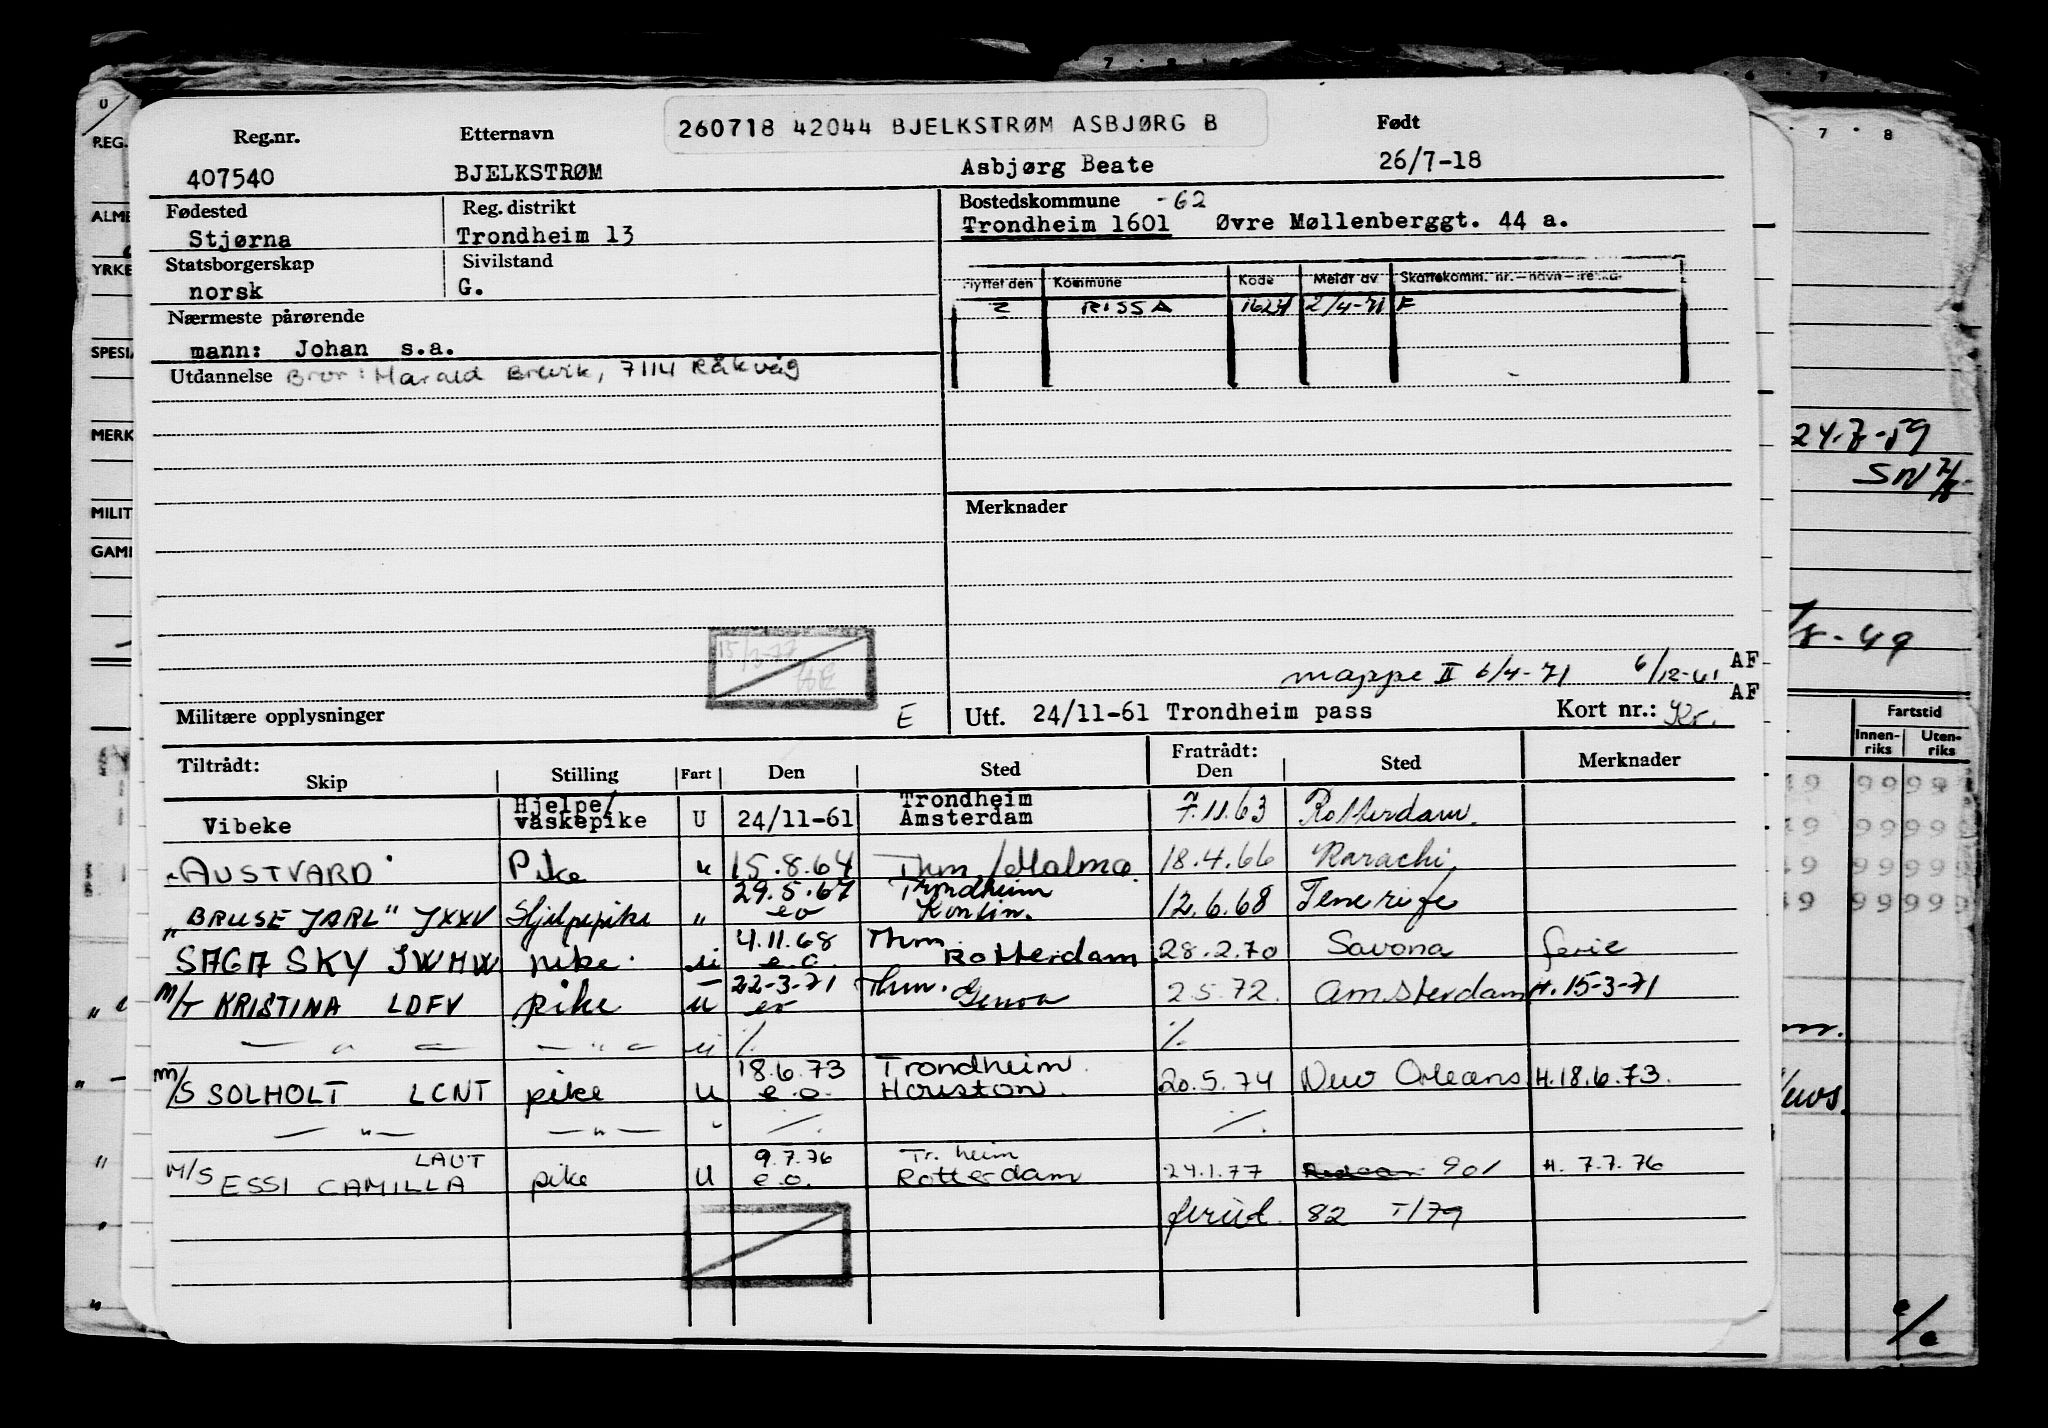 260718 42044 BJELKSTRØM ASBJØRG B
Reg.nr. Etternavn Født
407540 BJELKSTRØM Asbjørg Beate 26/7-18
Fødested Reg. distrikt Bostedskommune -62
Stjørna Trondheim 13 Trondheim 1601 Øvre Møllenberggt. 44 a.
Statsborgerskap Sivilstand
norsk G.
Flyttet den Kommune Kode Meldt av Skattekomm. nr.
RISSA 1624 2/4-71 F
Nærmeste pårørende
mann: Johan s.a.
Utdannelse Bror: Harald Brevik, 7114 Råkvåg
Merknader
15/3-77
mappe II 6/4-71 6/12-61 AF
AF
Militære opplysninger E Utf. 24/11-61 Trondheim pass Kort nr.: Kr.
Tiltrådt: Fratrådt:
Skip Stilling Fart Den Sted Den Sted Merknader
Hjelpe/ Trondheim
Vibeke vaskepike U 24/11-61 Amsterdam 7.11.63 Rotterdam.
"AUSTVARD" Pike u 15.8.64 Thm/Malmø 18.4.66 Karachi
29.5.67 Trondheim
"BRUSE JARL" JXXV Hjelpepike " eo Kontin. 12.6.68 Tenerife
4.11.68 Thm
SAGA SKY JWHW pike u e.o. Rotterdam 28.2.70 Savona ferie
22-3-71 Thm.
M/T KRISTINA LDFV pike u eo Genova 2.5.72. Amsterdam H. 15-3-71
— " — — " — u % %
18.6.73 Trondheim
M/S SOLHOLT LCNT pike U e.o. Houston 20.5.74 New Orleans H. 18.6.73.
— " — — " — " %. %.
LAUT 9.7.76 Tr.heim
M/S ESSI CAMILLA pike U e.o. Rotterdam 24.1.77 901 H. 7.7.76
82 T/79
REG.
YRKE
MERK
MILIT
24-7-59
SN
/8-49
Fartstid
Innen-riks Uten-riks